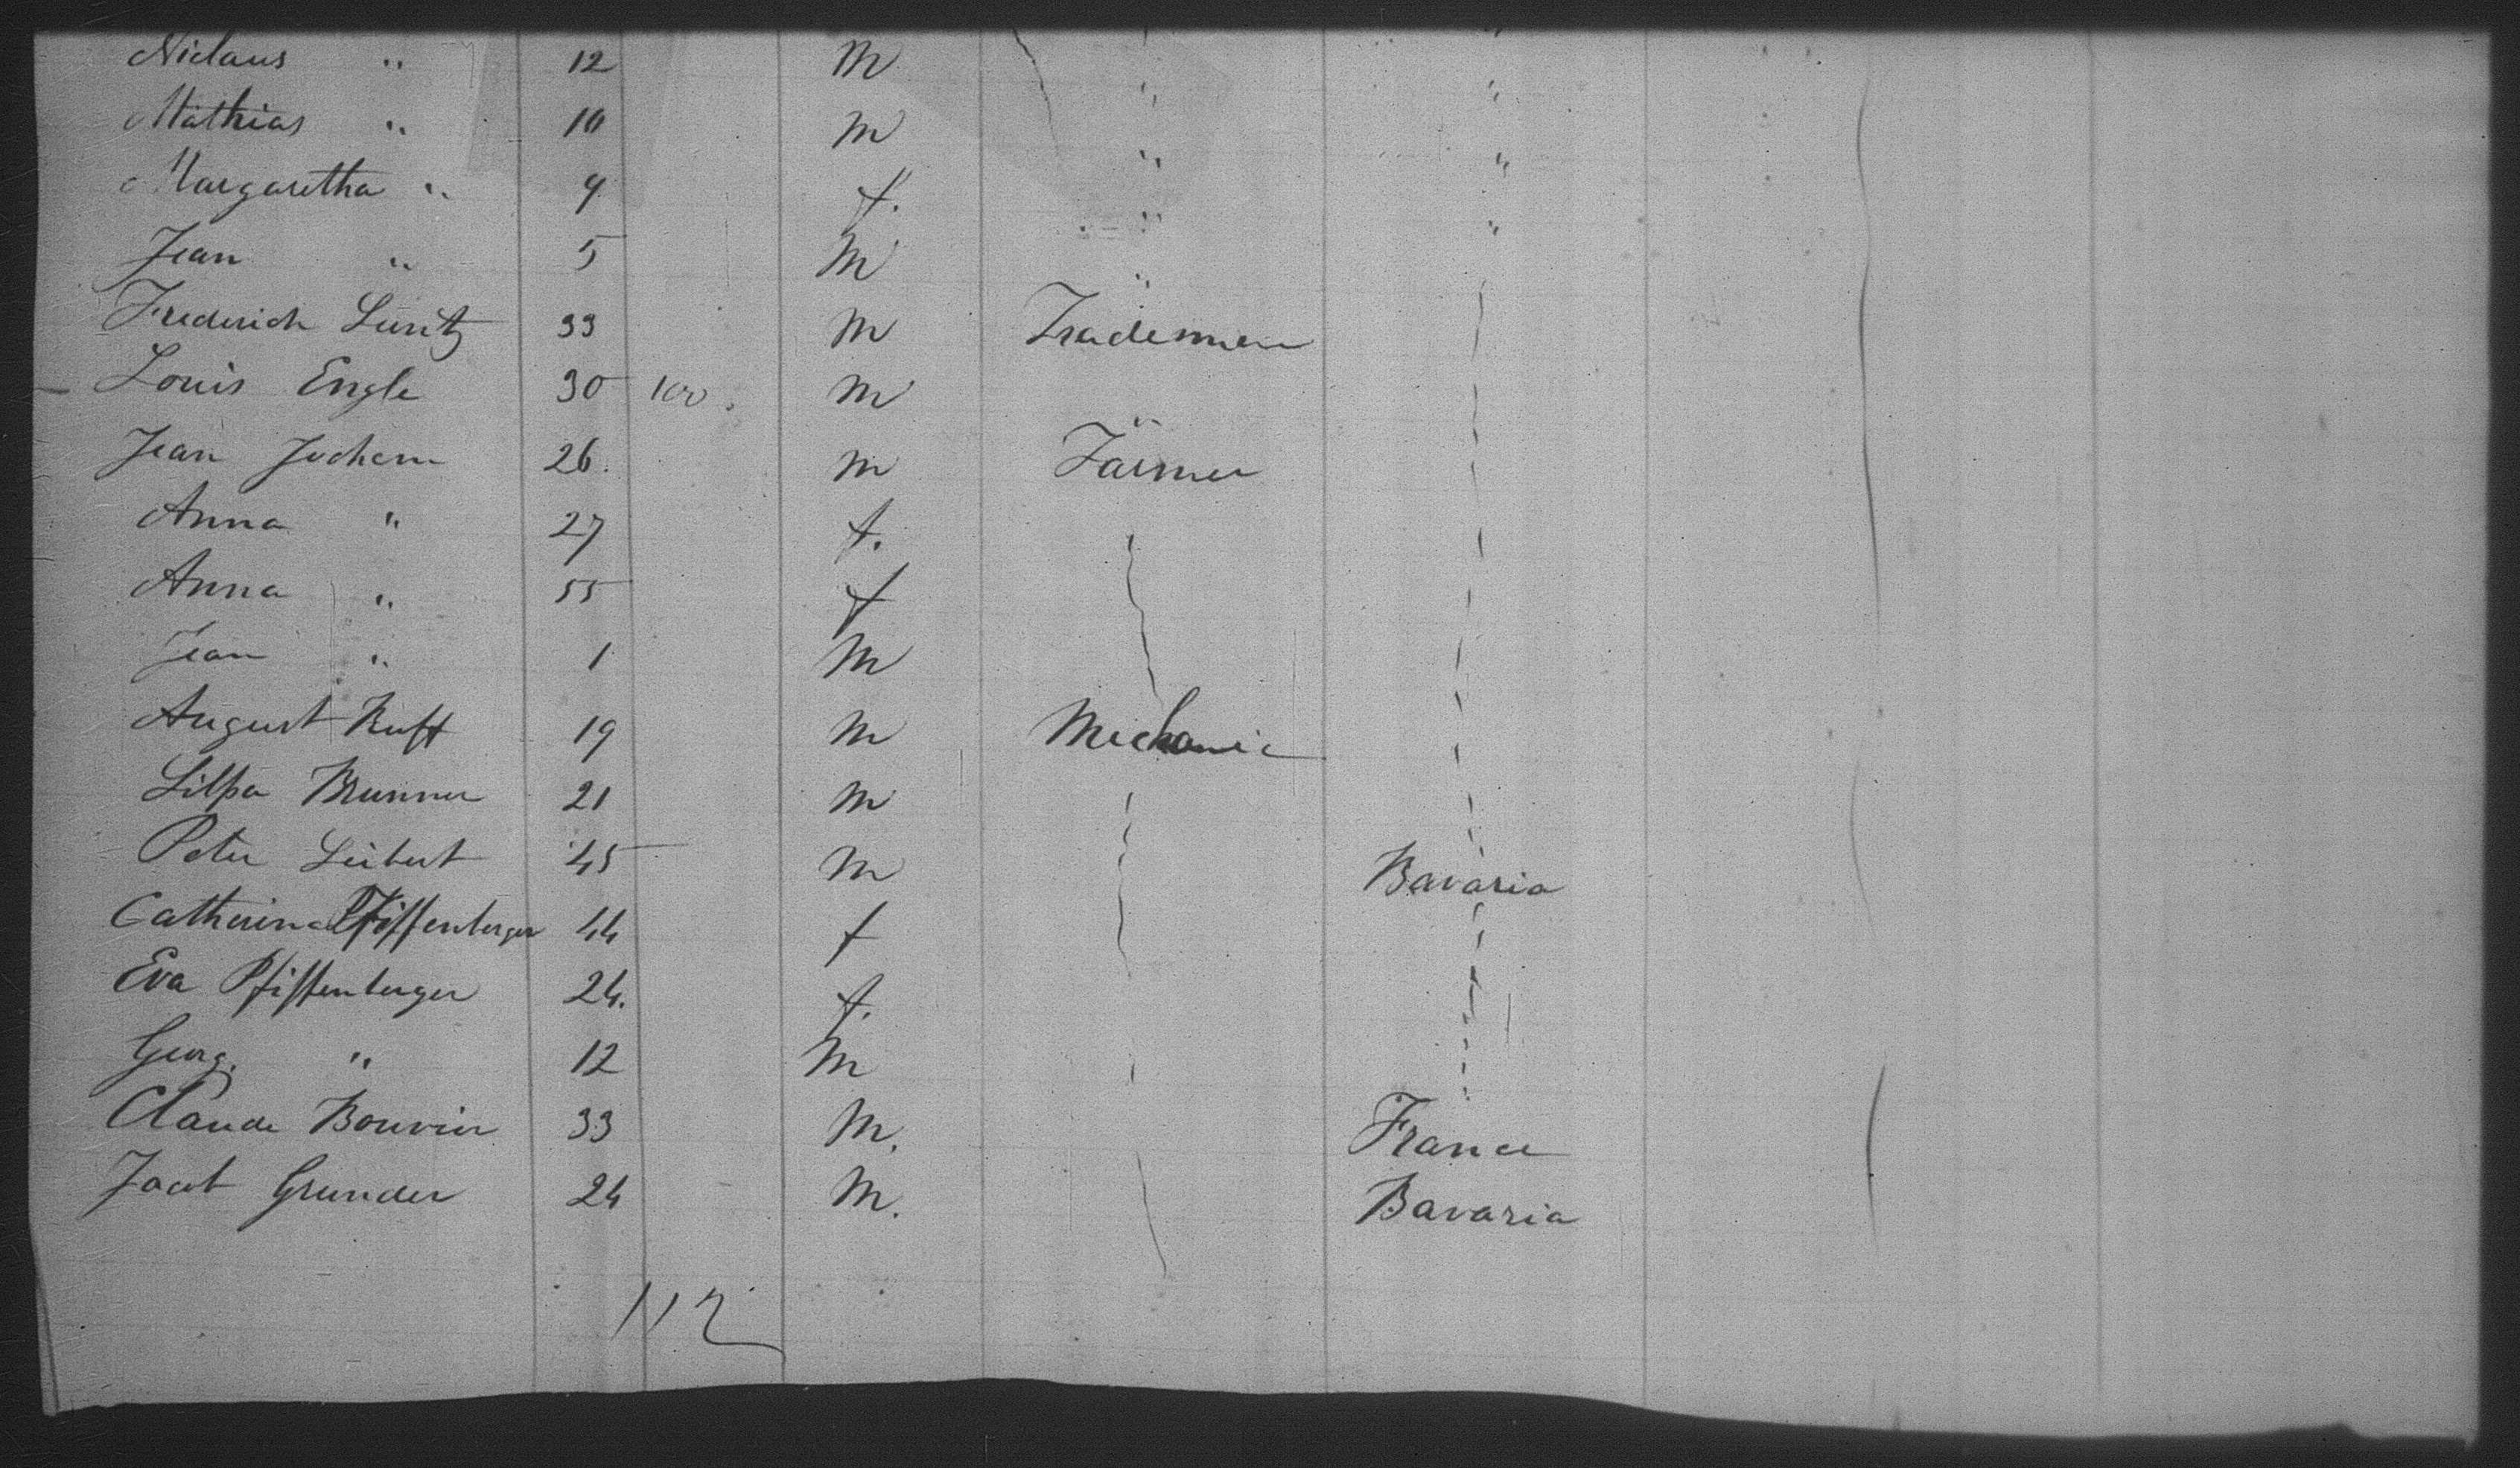 Niclaus " 12 M " "
Mathias " 10 M " "
Margaretha " 9 f. " "
Jean " 5 M "
Frederich Luntz 33 M Trademen
Louis Engle 30 100 M "
Jean Jochem 26. M Farmer
Anna " 27 f.
Anna " 55 f
Jean " 1 M
August Ruff 19 M Mechanic
Brunner 21 M
Peter Leibert 45 M Bavaria
Catherina Pfiffenberger 44 f
Eva Pfiffenberger 24. f.
Georg. " 12 M
Claude Bouvier 33 M. France
Jacob Grunder 24 M. Bavaria
112